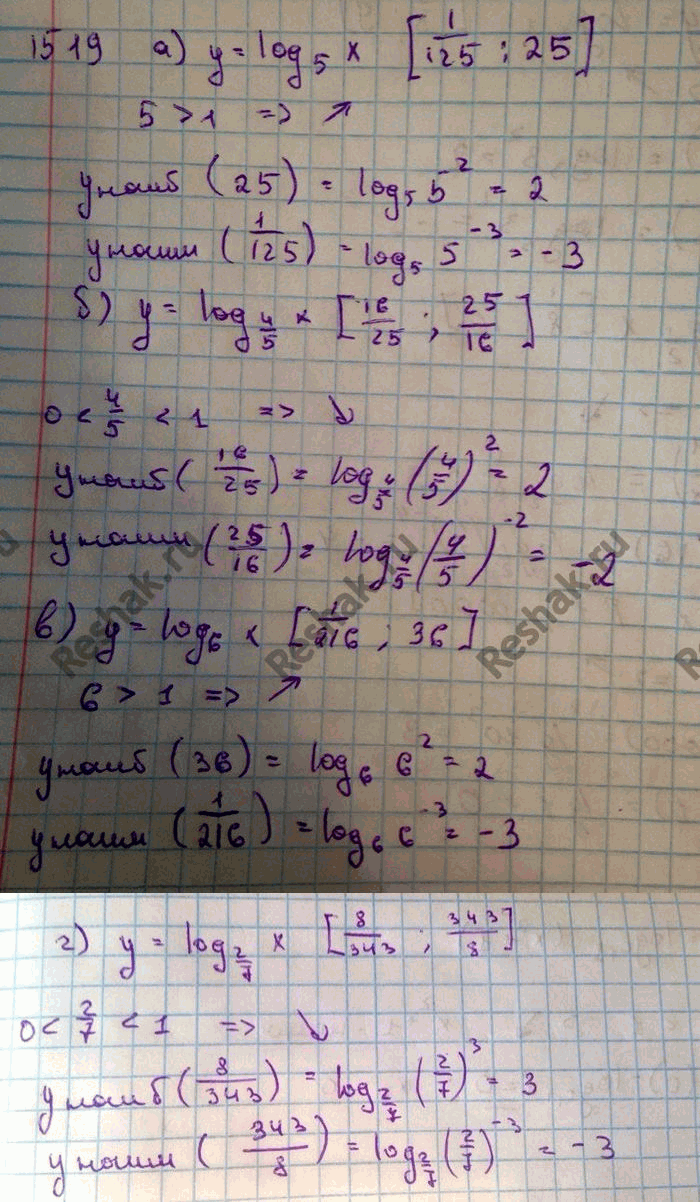 1519 а) y = log₅ x [1/125 ; 25]
5 > 1 => ↗
yнаиб (25) = log₅ 5⁻² = 2
yнаим (1/125) = log₅ 5⁻³ = -3
б) y = log_{4/5} x [16/25 ; 25/16]
0 < 4/5 < 1 => ↘
yнаиб (16/25) = log_{4/5} (4/5)² = 2
yнаим (25/16) = log_{4/5} (4/5)⁻² = -2
в) y = log₆ x [1/216 ; 36]
6 > 1 => ↗
yнаиб (36) = log₆ 6² = 2
yнаим (1/216) = log₆ 6⁻³ = -3
г) y = log_{2/7} x [8/343 ; 343/8]
0 < 2/7 < 1 => ↘
yнаиб (8/343) = log_{2/7} (2/7)³ = 3
yнаим (343/8) = log_{2/7} (2/7)⁻³ = -3
Reshak.ru
Reshak.ru
Reshak.ru